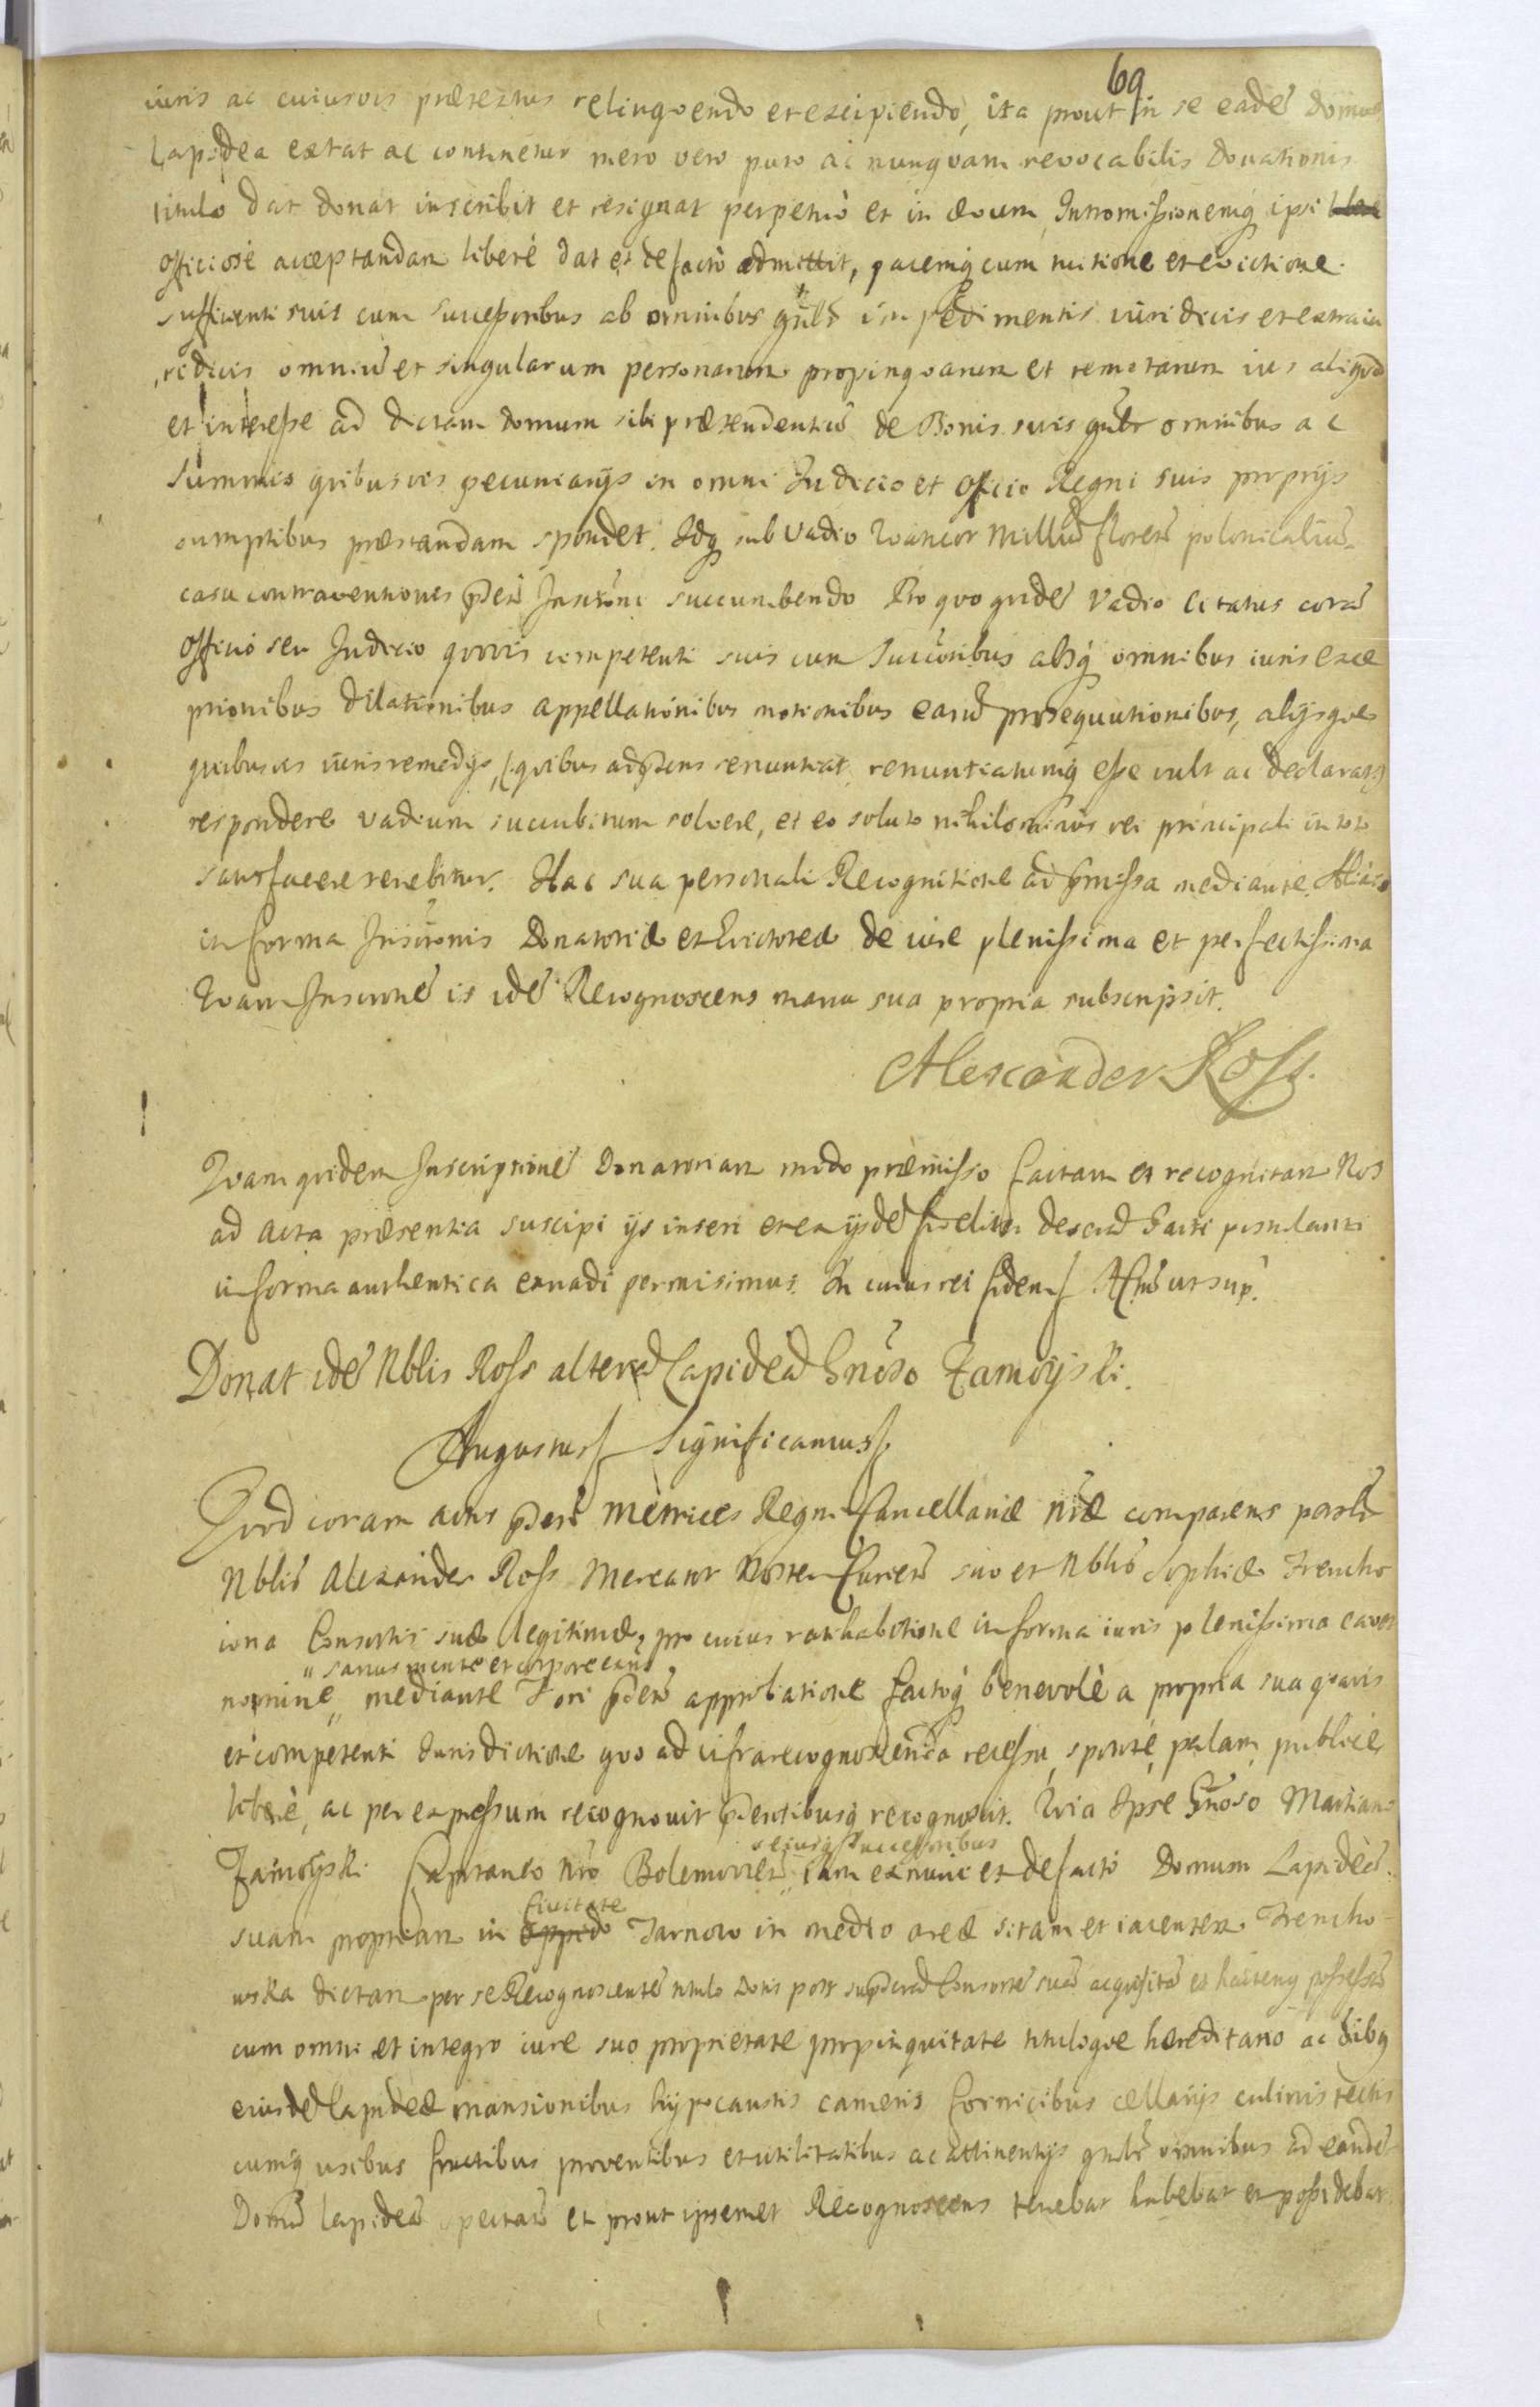 69
iuris ac cuiusvis prætextus relinquendo et excipiendo, ita prout in se eadē domus
Lapidea extat ac continetur mero vero puro ac nunquam revocabilis donationis
titulo dat donat inscribit et resignat perpetuò et in ævum, Intromissionemq́ ipsi
officiosè acceptandam liberè dat et de facto admittit, pacemq́ cum tuitione et evictione
sufficienti suis cum successoribus ab omnibus gñlr impedimentis iuridicis et extraiu
ridicis omniū et singularum personarum propinquarum et remotarum ius aliquod
et interesse ad dictam domum sibi prætendentiū de Bonis suis gñlr omnibus ac
Summis quibusvis pecuniarijs in omni Iudicio et officio Regni suis proprijs
sumptibus præstandam spondet. Idq́ sub vadio Quatuor Milliū florenō polonicaliū
casu contraventionis pñti Inscrōni succumbendo Pro quo quidē vadio citatus corā
officio seu Iudicio quovis competenti suis cum Succōribus absq́ omnibus iuris exce
ptionibus dilationibus appellationibus motionibus earūd prosequutionibus, alijsque
quibusvis iuris remedijs, (quibus ad pñens renuntiat, renuntiatumq́ esse vult ac declarat)
respondere vadium succubitum solvere, et eo soluto nihilominus rei principali in toto
satisfacere tenebitur. Hac sua personali Recognitione ad p̃missa mediante.
in forma Inscrōnis Donatoriæ et Evictoreæ de iure plenissima et perfectissima
Quam Inscrōnē is idē Recognoscens manu sua propria subscripsit.
Alexander Ross.
Quam quidem Inscriptionē Donatoriam modo præmisso factam et recognitam Nos
ad acta præsentia suscipi ijs inseri et ex ijsdē fideliter descriā Parti postulanti
in forma authentica extradi permisimus. In cuius rei fidem Actū ut sup.
Donat idē Nblis Ross alterā Lapideā Gnōso Zamoyski.
Augustus Significamus
Quod coram actis pñtibs Metrices Regni Cancellariæ nrǣ comparens persōlr
Nblis Alexander Ross Mercator Noster suo et Nblis Sophiæ Trencho
iona Consortis suæ legitimæ, pro cuius ratihabitione in forma iuris plenissima cavet
" sanus mente et corpore exñs
nomine " mediante Fori pñtis approbatione factoq́ benevolè a propria sua quavis
et competenti Iurisdictione quo ad infrarecognoscenda recessu, spontè, palam, publicè
liberè, ac per expressum recognovit pñtibusq́ recognoscit. Quia Ipse Gnōso Martiano
Zamoyski Capitaneo nrō Bolemovien eiusq́ Successoribus iam ex nunc et de facto Domum Lapideā
suam propriam in oppido Civitate Tarnow in medio areæ sitam et iacentem Trencho
wska dictam per se Recognoscentē titulo Dotis post supdictā Consortē suā acquisitā et hactenq́ possessā
cum omni et integro iure suo proprietate propinquitate tituloque hæreditario ac oibq́
eiusdē Lapideæ mansionibus hypocaustis cameris fornicibus cellarijs culinis tectis
cumq́ usibus fructibus proventibus et utilitatibus ac attinentijs gñlr omnibus ad eandē
Domū Lapideā spectañ et prout ipsemet Recognoscens tenebat habebat et possidebat